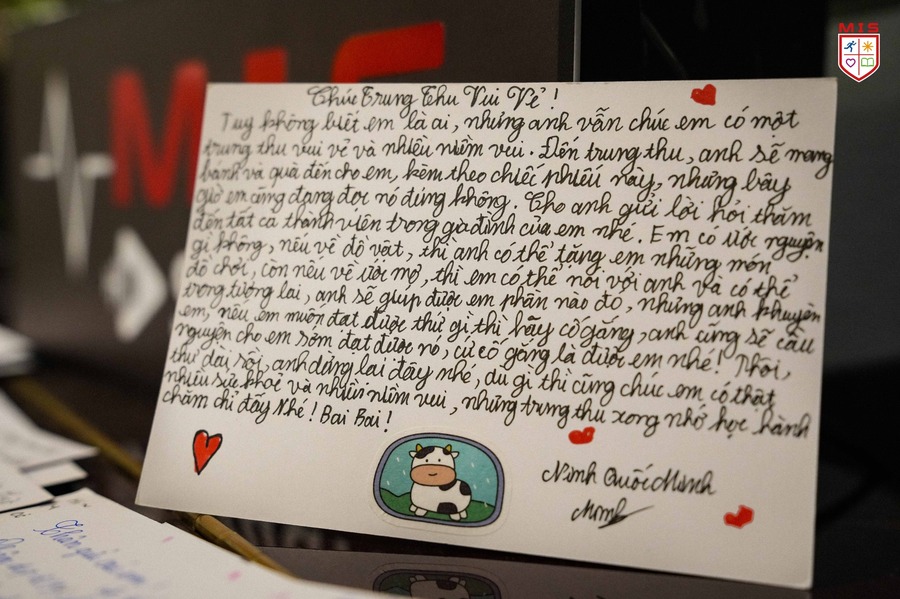 MIS
MIS
Chúc Trung Thu Vui Vẻ!
Tuy không biết em là ai, nhưng anh vẫn chúc em có một
trung thu vui vẻ và nhiều niềm vui. Đến trung thu, anh sẽ mang
bánh và quà đến cho em, kèm theo chiếc phiếu này, nhưng bây
giờ em cũng đang đợi nó đúng không. Cho anh gửi lời hỏi thăm
đến tất cả thành viên trong gia đình của em nhé. Em có ước nguyện
gì không, nếu về đồ vật, thì anh có thể tặng em những món
đồ chơi, còn nếu về ước mơ, thì em có thể nói với anh và có thể
trong tương lai, anh sẽ giúp được em phần nào đó, nhưng anh khuyên
em, nếu em muốn đạt được thứ gì thì hãy cố gắng, anh cũng sẽ cầu
nguyện cho em sớm đạt được nó, cứ cố gắng là được em nhé! Thôi,
thư dài rồi, anh dừng lại đây nhé, dù gì thì cũng chúc em có thật
nhiều sức khoẻ và nhiều niềm vui, nhưng trung thu xong nhớ học hành
chăm chỉ đấy Nhé! Bai Bai!
Ninh Quốc Minh
Minh